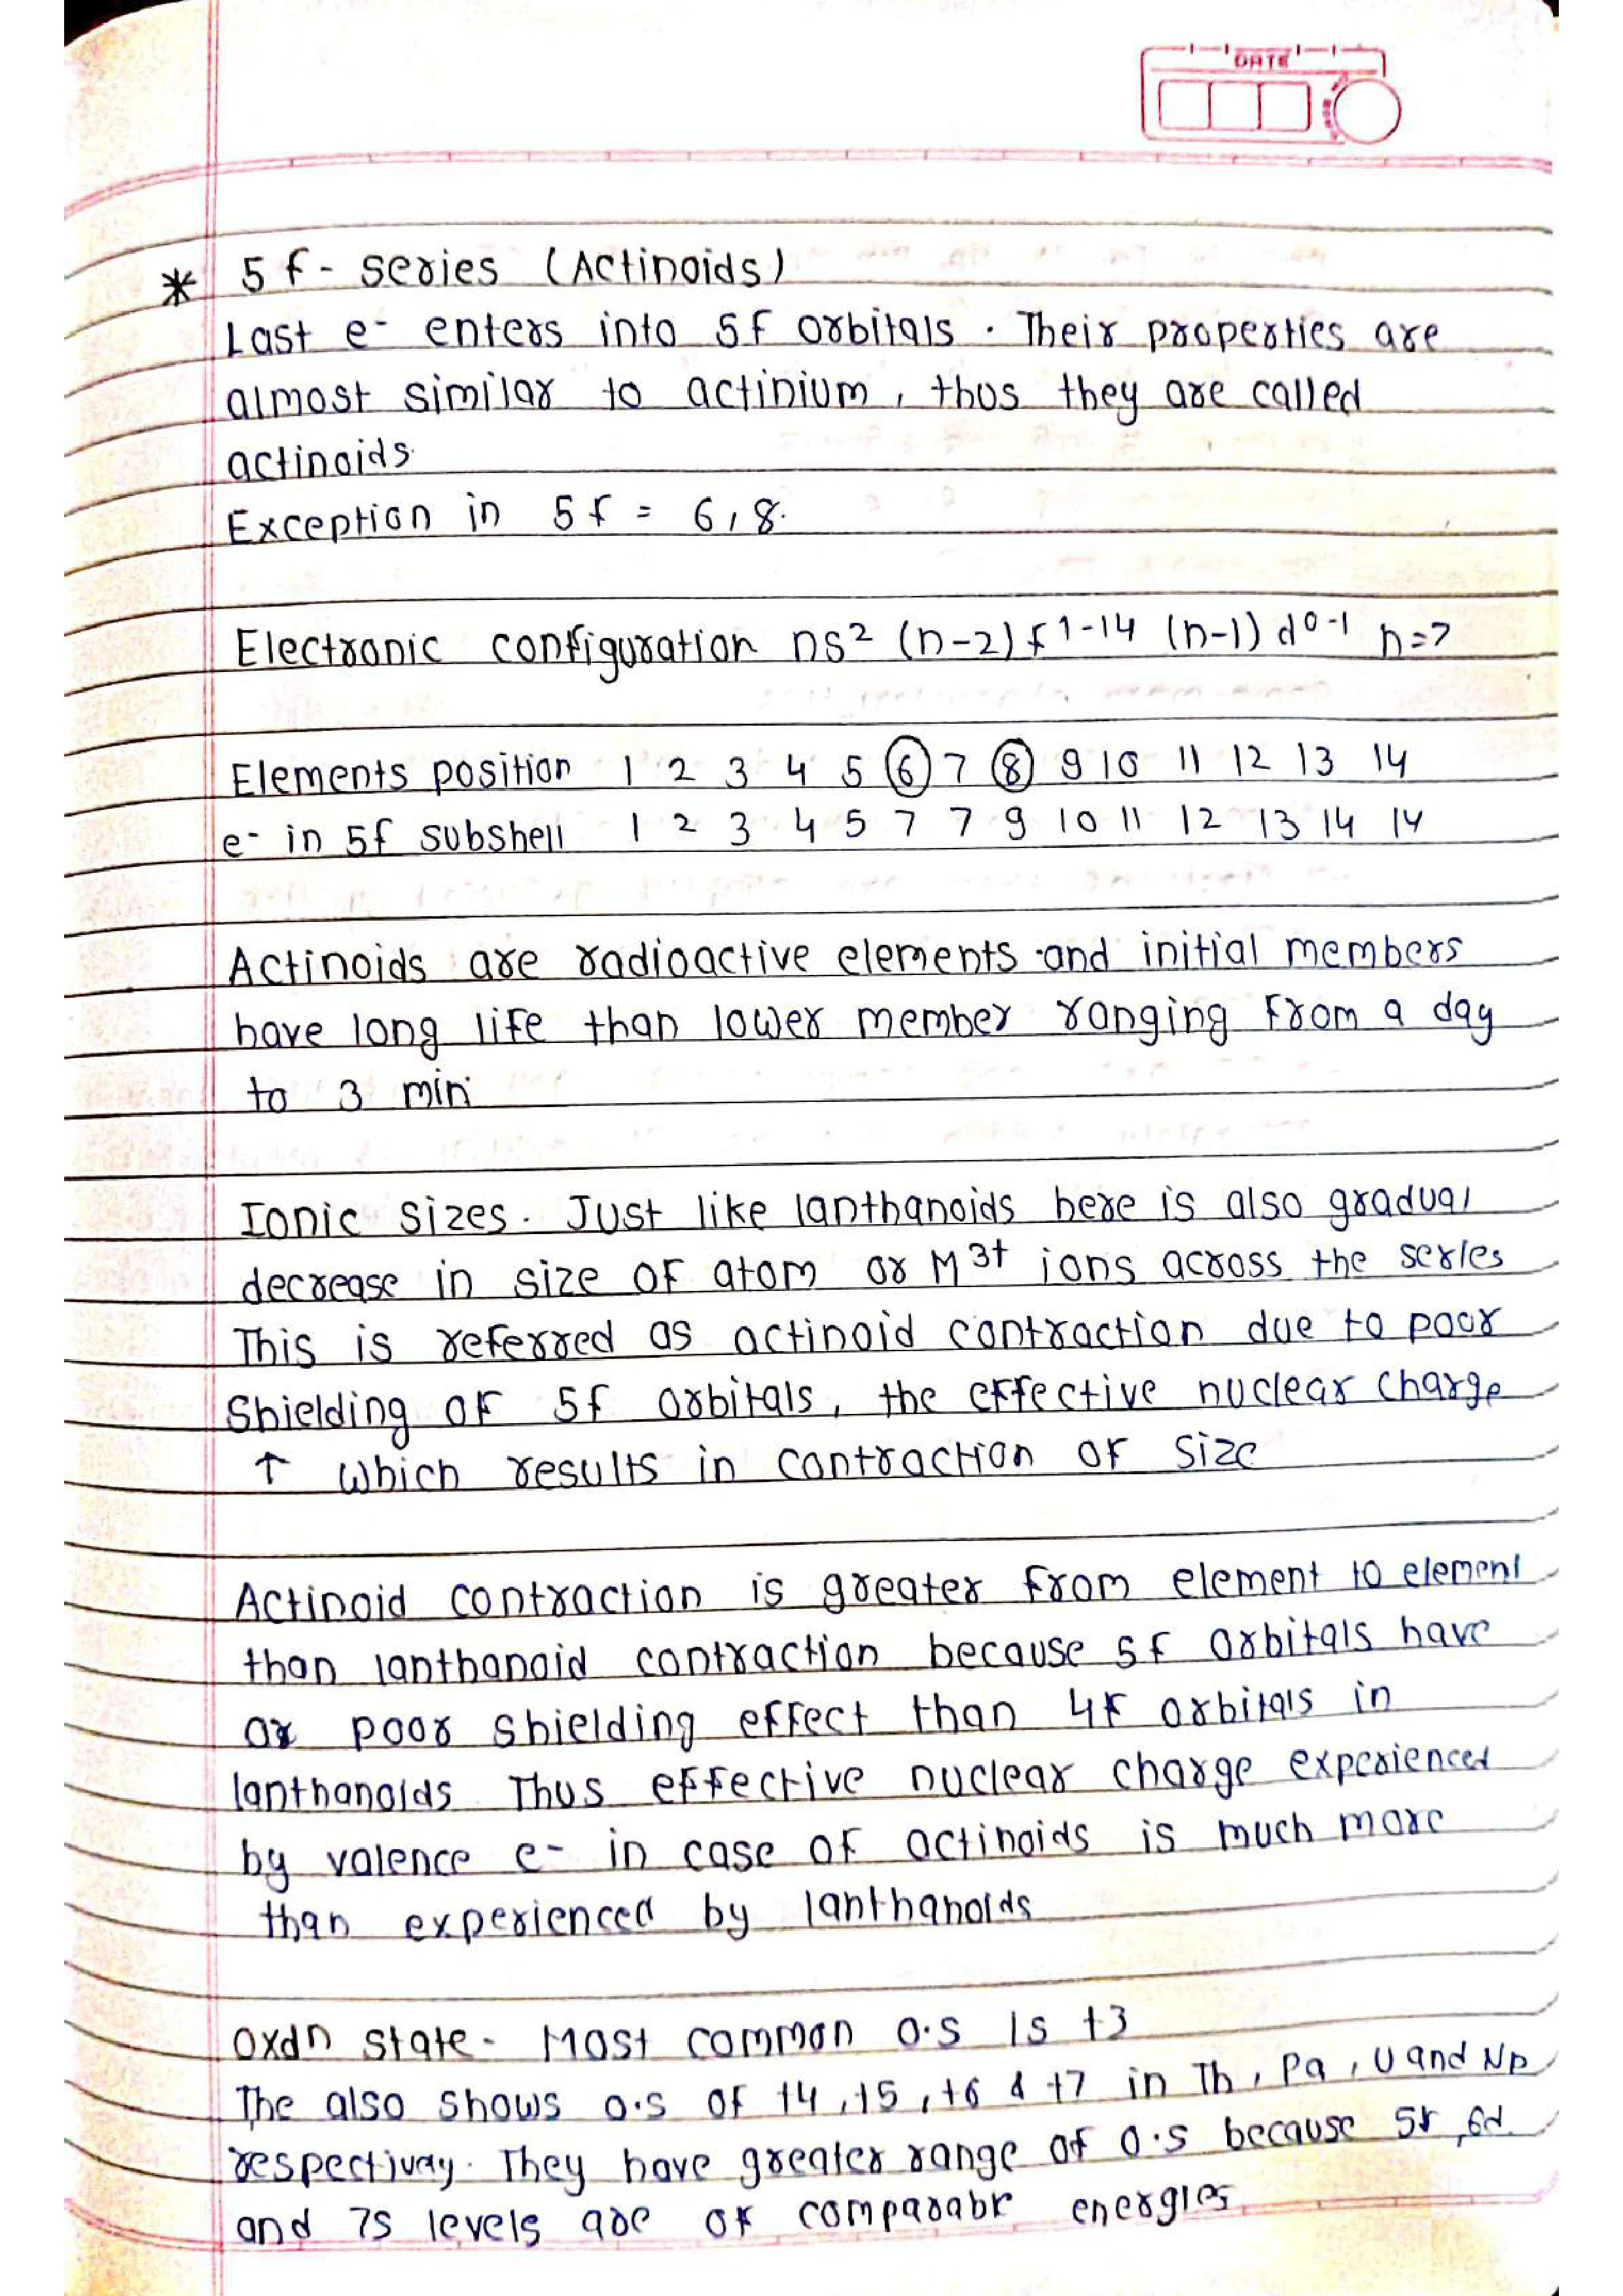 DATE
* 5f - series (Actinoids)
Last e- enters into 5f orbitals. Their properties are
almost similar to actinium, thus they are called
actinoids.
Exception in 5f = 6, 8.
Electronic configuration ns² (n-2) f¹⁻¹⁴ (n-1) d⁰⁻¹ n=7
Elements position 1 2 3 4 5 6 7 8 9 10 11 12 13 14
e- in 5f subshell 1 2 3 4 5 7 7 9 10 11 12 13 14 14
Actinoids are radioactive elements and initial members
have long life than lower member ranging from a day
to 3 min
Ionic sizes. Just like lanthanoids here is also gradual
decrease in size of atom or M³⁺ ions across the series
This is referred as actinoid contraction due to poor
shielding of 5f orbitals, the effective nuclear charge
↑ which results in contraction of size
Actinoid contraction is greater from element to element
than lanthanoid contraction because 5f orbitals have
poor shielding effect than 4f orbitals in
lanthanoids Thus effective nuclear charge experienced
by valence e- in case of actinoids is much more
than experienced by lanthanoids
Oxdn state - Most common O.S is +3
The also shows O.S of +4, +5, +6 & +7 in Th, Pa, U and Np
respectivey. They have greater range of O.S because 5f, 6d
and 7s levels are of comparable energies